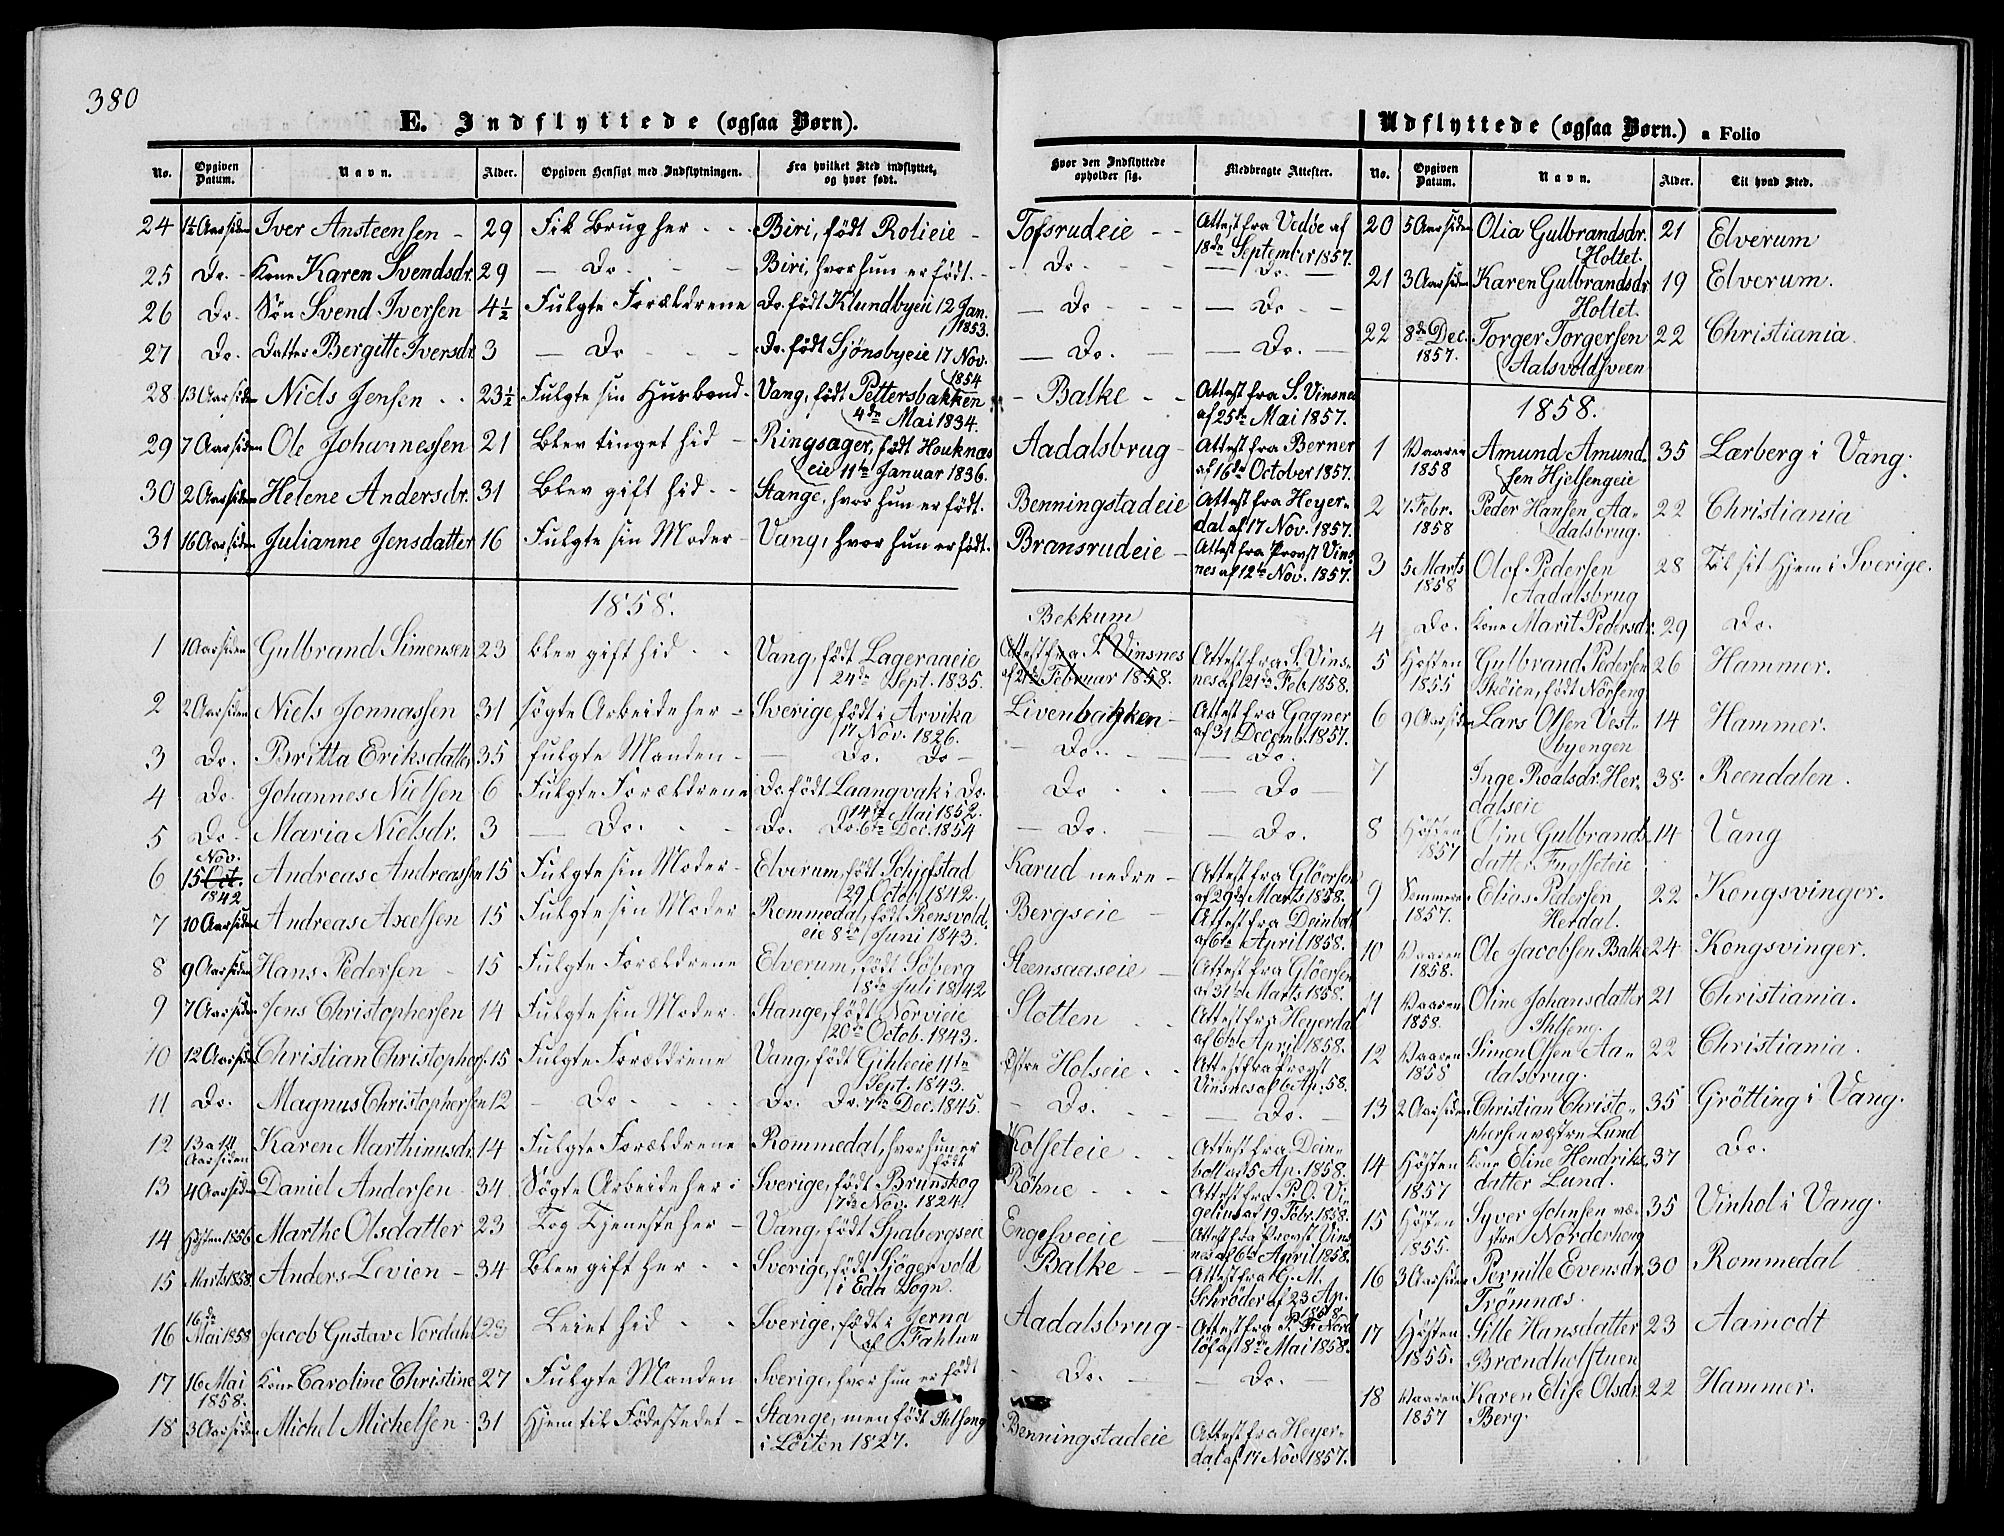 380
E. Indflyttede (ogsaa Børn).
No. Opgiven Datum. Navn. Alder. Opgiven Hensigt med Indflytningen. Fra hvilket Sted indflyttet, og hvor født.
24 1½ Aar siden Iver Ansteensen - 29 Fik Brug her - - Biri, født Rolieie -
25 Do. - Kone Karen Svendsdr. 29 - Do - - Biri, hvor hun er født. -
26 Do. Søn Svend Iversen 4½ Fulgte Forældrene Do. født Klundbyeie 12 Jan. 1853.
27 Do. Datter Bergitte Iversdr. 3 - Do - - Do. født Sjønsbyeie 17 Nov. 1854
28 13 Aar siden Niels Jensen - - 23½ Fulgte sin Husbond - Vang, født Pettersbakken
4de Mai 1834.
29 7 Aar siden Ole Johannessen 21 Blev tinget hid - Ringsager, født Houknæs
eie 11te Januar 1836.
30 2 Aar siden Helene Andersdr. 31 Blev gift hid - - Stange, hvor hun er født.
31 16 Aar siden Julianne Jensdatter 16 Fulgte sin Moder - Vang, hvor hun er født.
1858.
1 10 Aar siden Gulbrand Simensen 23 blev gift hid - - Vang, født Lageraaeie
24de Sept. 1835.
2 2 Aar siden Niels Jonnassen 31 søgte Arbeide her - Sverige, født i Arvika
17 Nov. 1826.
3 Do. Britta Eriksdatter 35 fulgte Manden - - Do. Do -
4 Do. Johannes Nielsen 6 Fulgte Forældrene Do. født Laangvak i Do.
14de Mai 1852.
5 Do - Maria Nielsdr. 3 - Do. - - Do. Do. 6te Dec. 1854
6 15 Nov. Oct. 1842 Andreas Andreassen 15 Fulgte sin Moder - Elverum, født Schjefstad
29 Octob. 1842.
7 10 Aar siden Andreas Axelsen 15 Fulgte sin Moder Rommedal, født Rensvold
eie 8de Juni 1843.
8 9 Aar siden Hans Pedersen - 15 Fulgte Forældrene Elverum, født Søberg
18de Juli 1842
9 7 Aar siden Jens Christophersen 14 Fulgte sin Moder. Stange, født Norvieie
20de Octob. 1843.
10 12 Aar siden Christian Christophers. 15 Fulgte Forældrene Vang, født Gihleeie 11te
Sept. 1843.
11 Do. Magnus Christophersen 12 - Do - - - Do. Do. 7de Dec. 1845.
12 13 a 14 Aar siden Karen Marthinusdr. 14 Fulgte Forældrene Rommedal, hvor hun er
født
13 4 Aar siden Daniel Andersen - 34 Søgte Arbeide her : Sverige, født Brunskog
7de Nov. 1824.
14 Høsten 1856 Marthe Olsdatter 23 Tog Tjeneste her - Vang, født Spabergseie
15 Marts 1858 Anders Levien - 34 Blev gift her - - Sverige, født Sjøgervold
i Eda Sogn.
16 16de Mai 1858 Jacob Gustav Nordahl 23 Leiet hid - - Sverige, født i Jerna
af Fahlun
17 16 Mai 1858. Kone Caroline Christine 27 Fulgte Manden Sverige, hvor hun er født
18 3 Aar siden Michel Michelsen - 31 Hjem til Fødestedet - Stange, men født Ihlseng
i Løiten 1827.
Hvor den Indflyttede opholder sig. Medbragte Attester.
Tofsrudeie - - Attest fra Vedøe af
18de September 1857.
- Do. - - - Do. -
- Do - - - Do -
- Do. - - - Do. -
- Balke - - Attest fra S. Vinsnes
af 25de Mai 1857.
Aadalsbrug - Attest fra Berner
af 16de October 1857.
Benningstadeie Attest fra Heyer-
dal af 17 Nov. 1857.
Bransrudeie - Attest fra Provst Vins-
nes af 12te Nov. 1857.
Bekkum
Attest fra S. Vinsnes Attest fra S. Vins-
af 21de Februar 1858. nes af 21de Feb. 1858.
Livenbakken - Attest fra Gagner
af 31 Decemb. 1857.
- Do. - - Do.
Do - - - Do -
- Do. - - Do.
Karud nedre - Attest fra Gløersen
af 29de Marts 1858.
Bergseie - Attest fra Deinboll
af 6te April 1858.
Steensaaseie - Attest fra Gløersen
af 31te Marts 1858.
Slotten - - Attest fra Heyerdal
af 6te April 1858.
Østre Holseie - - Attest fra Provst
Vinsnes af 6 Ap. 58.
- Do. - - - Do. -
Kolseteie - - Attest fra Dein-
boll af 5 Ap. 1858.
Røhne - - - Attest fra P. O. Vi-
gelius af 19 Febr. 1858.
Engelsveeie - Attest fra Provst Vins
nes af 6te April 1858.
Balke - - Attest fra G. M.
Schrøder af 23 Ap.
1858.
Aadalsbrug - Attest fra P. F. Nord
løf af 8de Mai 1858.
- Do. - - Do.
Benningstadeie Attest fra Heyer-
dal af 17 Nov. 1857.
Udflyttede (ogsaa Børn.) a Folio
No. Opgiven Datum. Navn. Alder. Til hvad Sted.
20 5 Aar siden Olia Gulbrandsdr. 21 Elverum
Holtet.
21 3 Aar siden Karen Gulbrandsdr. 19 Elverum.
Holtet.
22 8de Dec. 1857. Torger Torgersen 22 Christiania.
Aalsvoldsveen
1858.
1 Vaaren 1858 Amund Amund- 35 Lærberg i Vang.
sen Hjelsengeie
2 7 Febr. 1858 Peder Hansen Aa- 22 Christiania
dalsbrug.
3 5 Marts 1858 Olof Pedersen 28 Til sit Hjem i Sverige.
Aadalsbrug
4 Do. Kone Marit Pedersdr. 29 Do.
5 Høsten 1855 Gulbrand Pedersen 26 Hammer.
Skøien, født Nørseng
6 9 Aar siden Lars Olsen Vest- 14 Hammer.
byengen
7 Inge Roalsdr. Her- 38 Reendalen.
dalseie
8 Høsten 1857 Oline Gulbrands- 14 Vang
datter Fuglseteie
9 Sommeren 1857. Elias Pedersen 22 Kongsvinger.
Herdal.
10 Vaaren 1858. Ole Jacobsen Balke 24 Kongsvinger.
11 Vaaren 1858. Oline Johansdatter 21 Christiania.
Ihlseng.
12 Vaaren 1858 Simen Olsen Aa- 22 Christiania.
dalsbrug.
13 2 Aar siden Christian Christo- 35 Grøtting i Vang.
phersen vestre Lund
14 Høsten 1857 Kone Eline Hendriks- 37 Do.
datter Lund.
15 Høsten 1855. Syver Johnsen ve- 35 Vinhol i Vang.
stre Norderhoug
16 3 Aar siden Pernille Evensdr. 30 Rommedal
Trømnæs.
17 Høsten 1855. Sille Hansdatter 23 Aamodt
Brændholstuen
18 Vaaren 1857 Karen Elise Olsdr. 22 Hammer.
Berg.